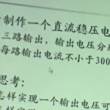 制作一个直流稳压电
三路输出，输出电压分
每路输出电流不小于300
思考：
怎样实现一个输出电